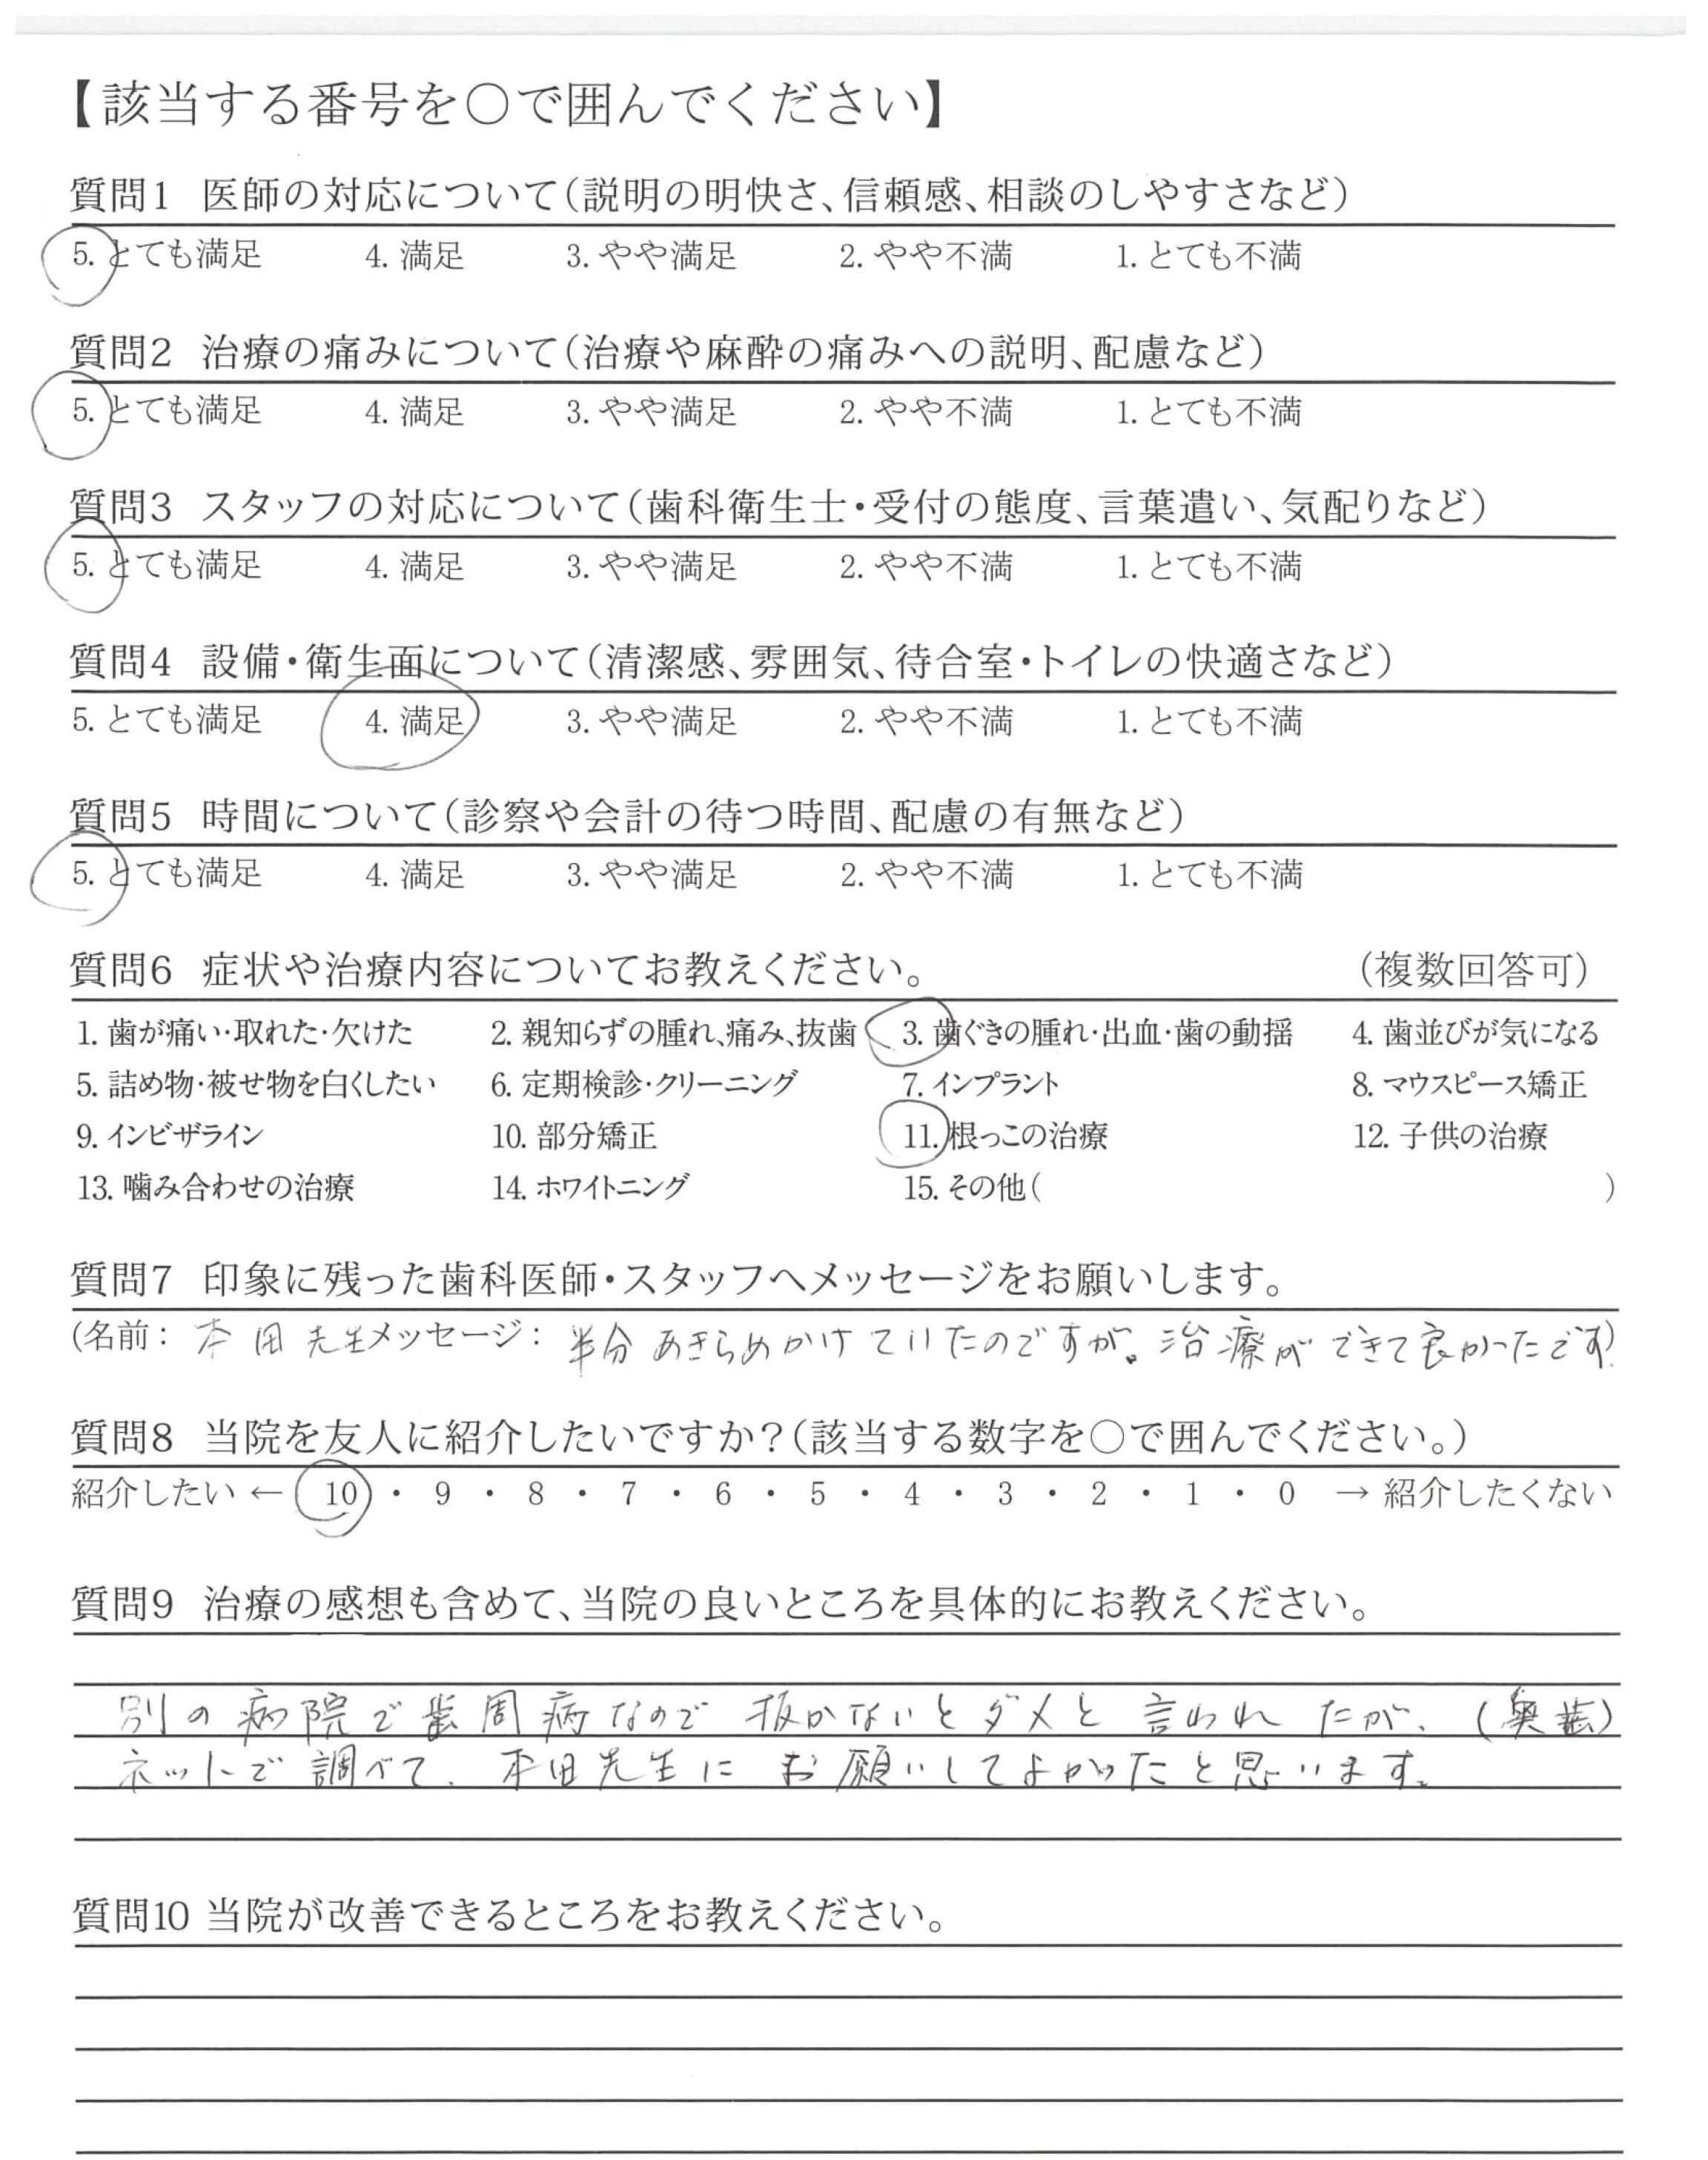 【該当する番号を○で囲んでください】
質問1 医師の対応について(説明の明快さ、信頼感、相談のしやすさなど)
5. とても満足 4. 満足 3. やや満足 2. やや不満 1. とても不満
質問2 治療の痛みについて(治療や麻酔の痛みへの説明、配慮など)
5. とても満足 4. 満足 3. やや満足 2. やや不満 1. とても不満
質問3 スタッフの対応について(歯科衛生士・受付の態度、言葉遣い、気配りなど)
5. とても満足 4. 満足 3. やや満足 2. やや不満 1. とても不満
質問4 設備・衛生面について(清潔感、雰囲気、待合室・トイレの快適さなど)
5. とても満足 4. 満足 3. やや満足 2. やや不満 1. とても不満
質問5 時間について(診察や会計の待つ時間、配慮の有無など)
5. とても満足 4. 満足 3. やや満足 2. やや不満 1. とても不満
質問6 症状や治療内容についてお教えください。 (複数回答可)
1. 歯が痛い・取れた・欠けた 2. 親知らずの腫れ、痛み、抜歯 3. 歯ぐきの腫れ・出血・歯の動揺 4. 歯並びが気になる
5. 詰め物・被せ物を白くしたい 6. 定期検診・クリーニング 7. インプラント 8. マウスピース矯正
9. インビザライン 10. 部分矯正 11. 根っこの治療 12. 子供の治療
13. 噛み合わせの治療 14. ホワイトニング 15. その他( )
質問7 印象に残った歯科医師・スタッフへメッセージをお願いします。
(名前: 本田先生 メッセージ: 半分あきらめかけていたのですが。治療ができて良かったです)
質問8 当院を友人に紹介したいですか?(該当する数字を○で囲んでください。)
紹介したい ← 10 ・ 9 ・ 8 ・ 7 ・ 6 ・ 5 ・ 4 ・ 3 ・ 2 ・ 1 ・ 0 → 紹介したくない
質問9 治療の感想も含めて、当院の良いところを具体的にお教えください。
別の病院で歯周病なので抜かないとダメと言われたが、(奥歯)
ネットで調べて、本田先生にお願いしてよかったと思います。
質問10 当院が改善できるところをお教えください。